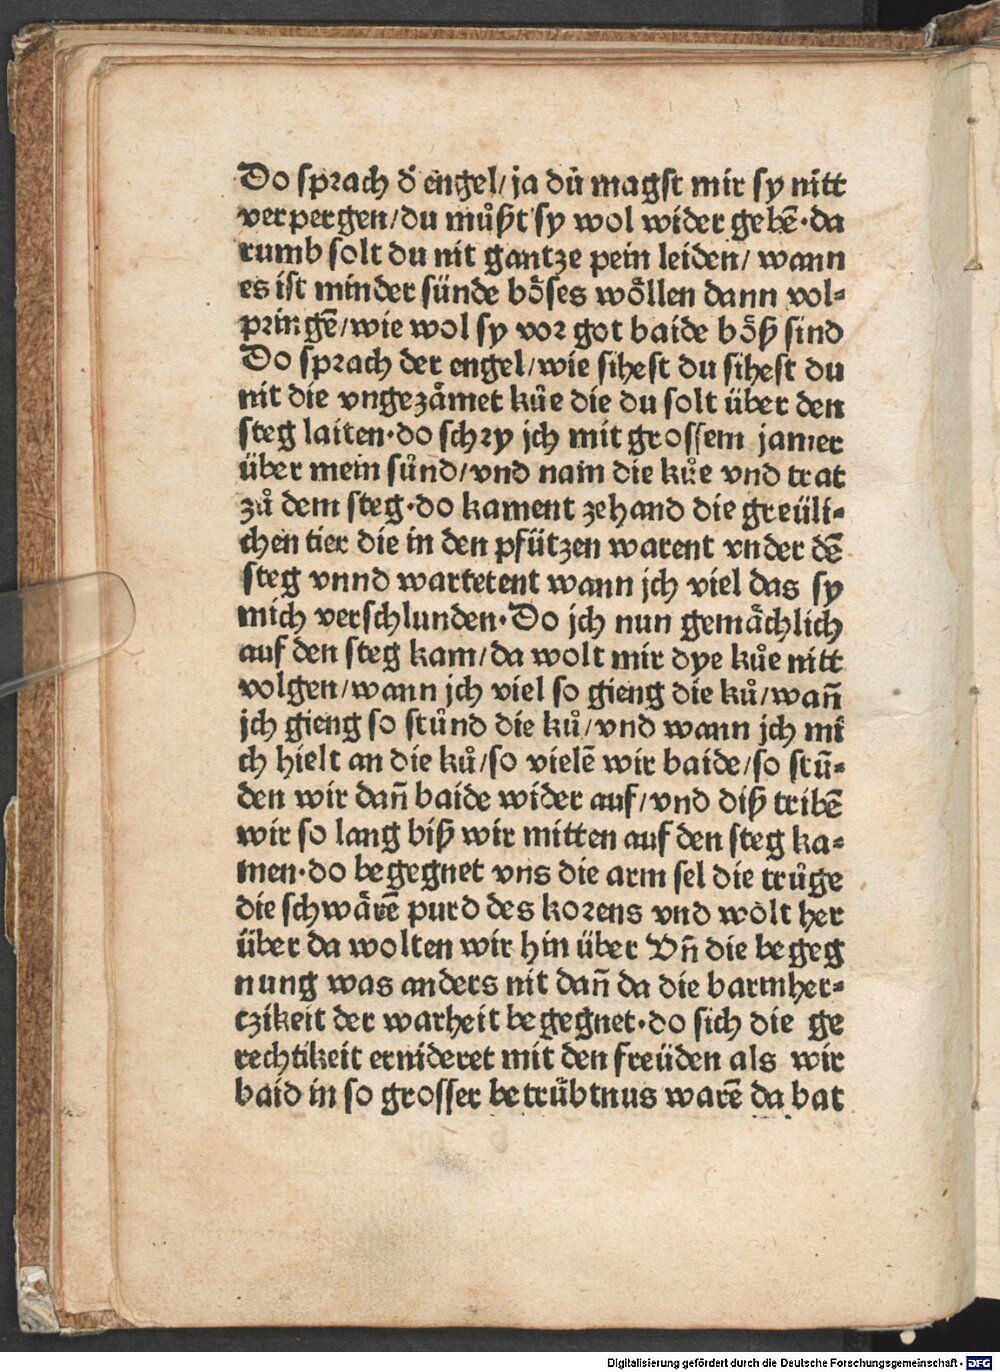 Do sprach d̕ engel/ ja du magst mir sy nitt
verpergen/ du můßt sy wol wider gebē·da
rumb solt du nit gantze pein leiden/ wann
es ist minder sünde böses wöllen dann vol-
pringē/ wie wol sy vor got baide böß sind
Do sprach der engel/ wie sihest du sihest du
nit die vngezämet kůe die du solt über den
steg laiten·do schry jch mit grossem jamer
über mein sünd/ vnd nam die kůe vnd trat
zů dem steg·do kament zehand die greüli-
chen tier die in den pfützen warent vnder dē
steg vnnd wartetent wann jch viel das sy
mich verschlunden·Do jch nun gemächlich
auf den steg kam/ da wolt mir dye kůe nitt
volgen/ wann jch viel so gieng die ků/ wañ
jch gieng so stůnd die ků/ vnd wann jch mi
ch hielt an die ků/ so vielē wir baide/ so stů-
den wir dañ baide wider auf/ vnd diß tribē
wir so lang biß wir mitten auf den steg ka-
men·do begegnet vns die arm sel die trůge
die schwärē purd des korens vnd wolt her
über da wolten wir hin über Vñ die begeg
nung was anders nit dañ da die barmher-
tzikeit der warheit begegnet·do sich die ge
rechtikeit ernideret mit den freüden als wir
baid in so grosser betrübtnus warē da bat
Digitalisierung gefördert durch die Deutsche Forschungsgemeinschaft - DFG